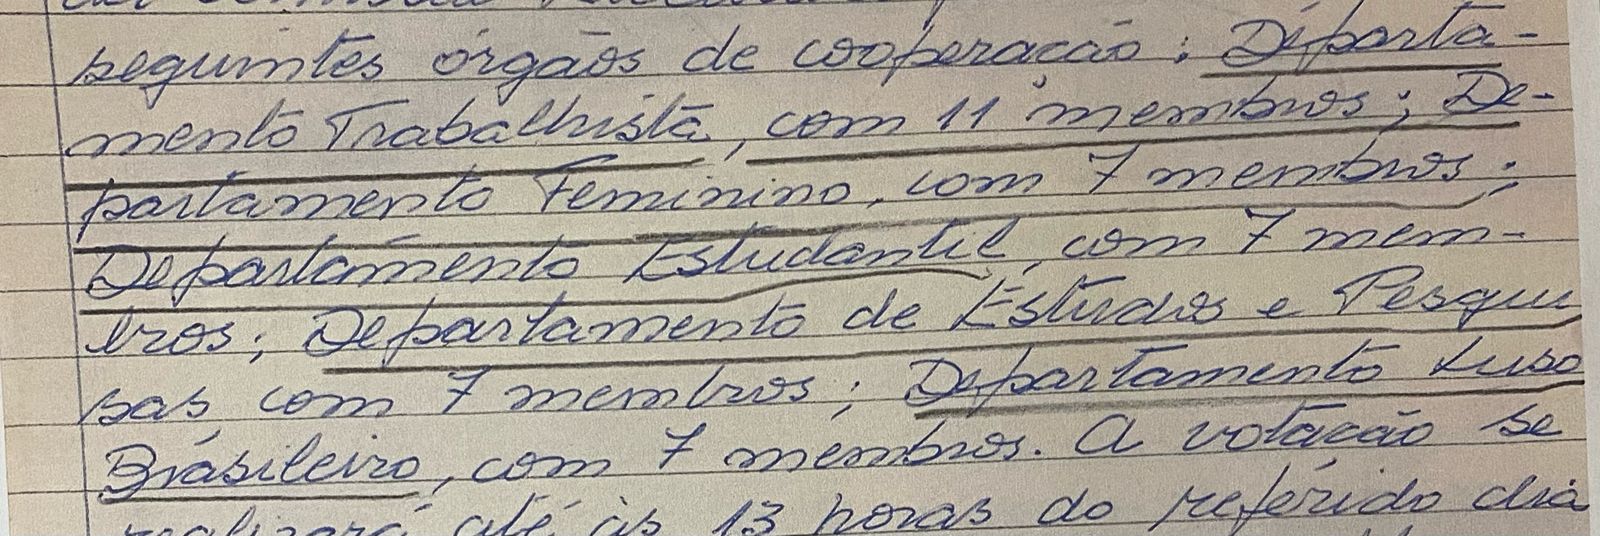 seguintes órgãos de cooperação: Departa-
mento Trabalhista, com 11 membros; De-
partamento Feminino, com 7 membros;
Departamento Estudantil, com 7 mem-
bros; Departamento de Estudos e Pesqui
sas, com 7 membros; Departamento Luso
Brasileiro, com 7 membros. A votação se
realizará até às 13 horas do referido dia